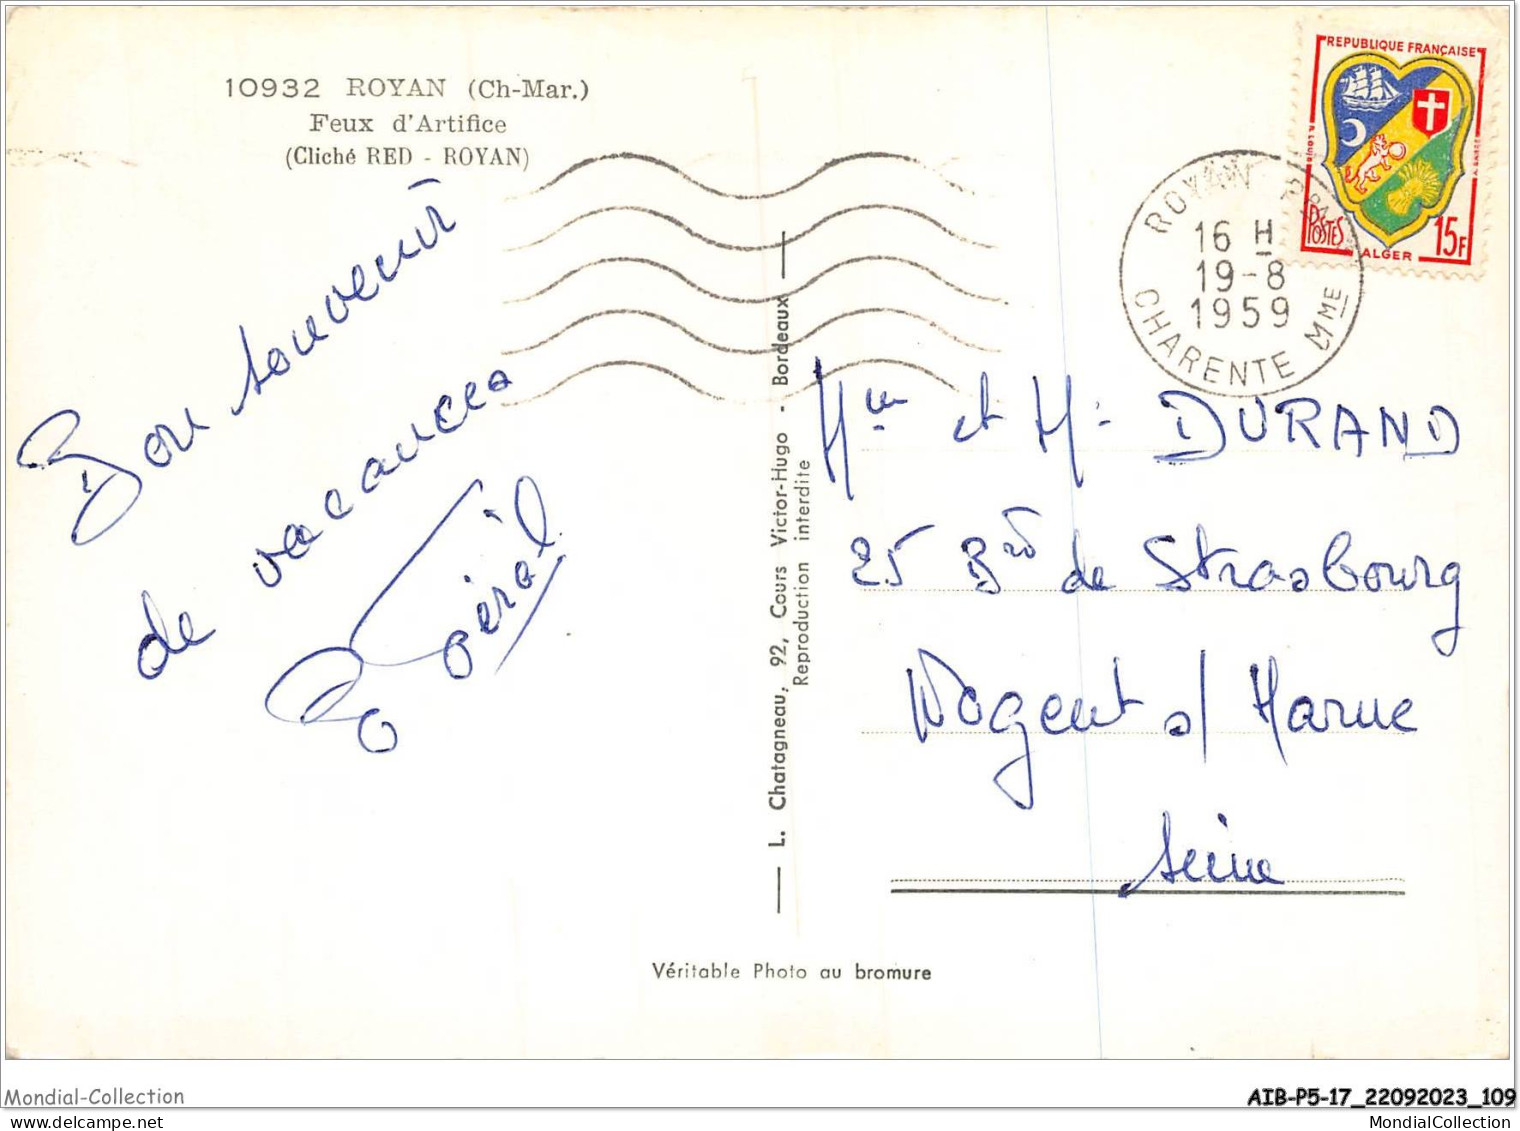 10932 ROYAN (Ch-Mar.)
Feux d'Artifice
(Cliché RED - ROYAN)
Bon souvenir
de vacances
REPUBLIQUE FRANÇAISE
POSTES
15F
ALGER
ROYAN
16 H
19-8
1959
CHARENTE MME
L. Chatagneau, 92, Cours Victor-Hugo - Bordeaux
Reproduction interdite
Mme et M. DURAND
25 Brd de Strasbourg
Nogent s/ Marne
Seine
Véritable Photo au bromure
Mondial-Collection
AIB-P5-17_22092023_109
MondialCollection